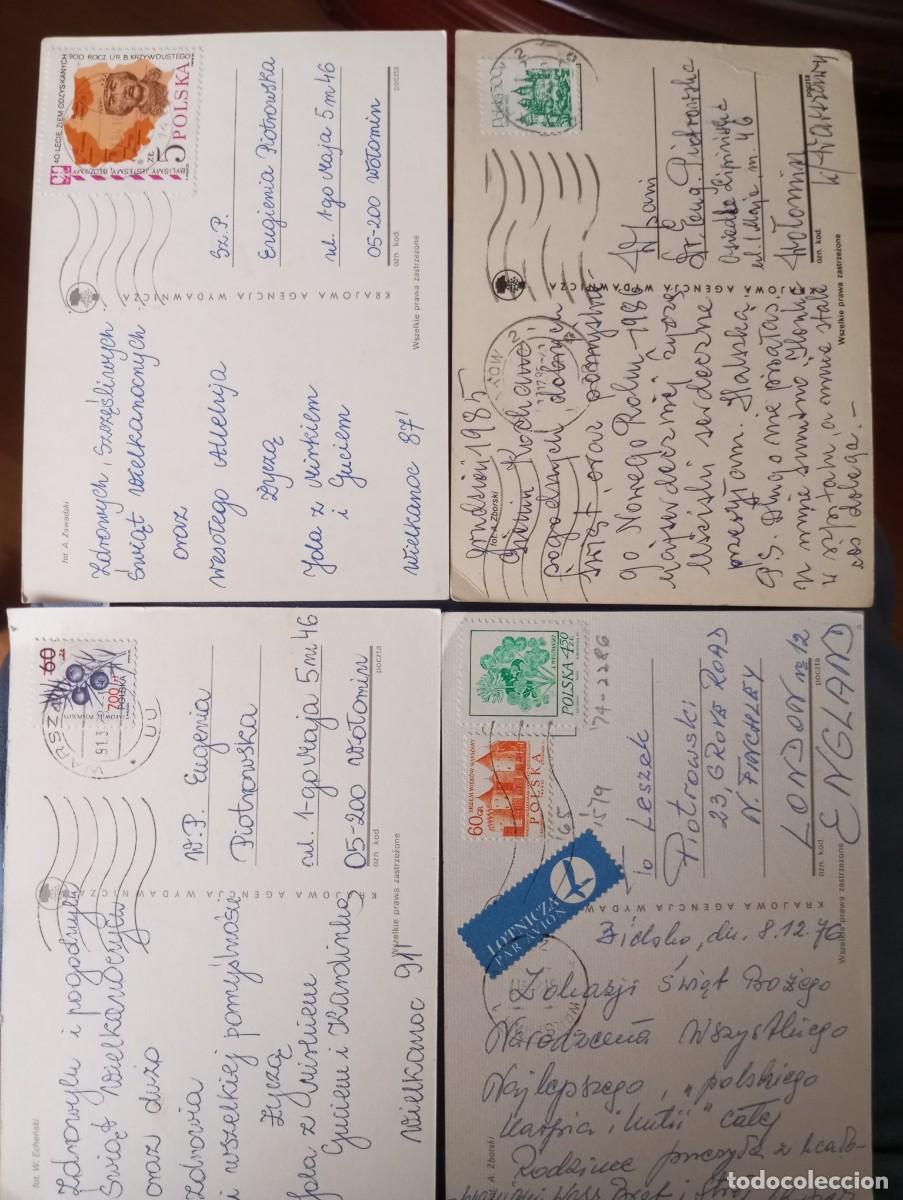 900 ROCZ. UR. B. KRZYWOUSTEGO
40-LECIE ZIEM ODZYSKANYCH
BYLIŚMY, JESTEŚMY, BĘDZIEMY
5 ZŁ
POLSKA
Sz.P.
Eugienia Piotrowska
ul. 1ego Maja 5 m 46
05-200 Wołomin
ozn. kod.
poczta
KRAJOWA AGENCJA WYDAWNICZA
Wszelkie prawa zastrzeżone
fot. A. Zawadzki
Zdrowych, Szczęśliwych
Świąt Wielkanocnych
oraz
Wesołego Alleluja
życzą
Jola z Mirkiem
i
Guciem
Wielkanoc 87'
W Pani
Dr. Eug. Piotrowska
ul. 1 Maja, m. 46
Wołomin
k/Warszawy
ozn. kod.
poczta
KRAJOWA AGENCJA WYDAWNICZA
Wszelkie prawa zastrzeżone
fot. A. Zborski
Grudzień 1985
pogodnych dobrych
Świąt oraz
go Nowego Roku 1986
najserdeczniej
serdeczne
przesyłam.
P.S. Długo nie
a mnie stale
coś dolega.-
60 zł
700 zł
POLSKA
WARSZAWA
91.3
W.P. Eugenia
Piotrowska
ul. 1-go Maja 5 m 46
05-200 Wołomin
ozn. kod.
poczta
KRAJOWA AGENCJA WYDAWNICZA
Wszelkie prawa zastrzeżone
fot. W. Echeński
Zdrowych i pogodnych
Świąt Wielkanocnych
oraz dużo
Zdrowia
i wszelkiej pomyślności
życzą
Jola z Mirkiem
Guciem i Kandinką
Wielkanoc 91'
POLSKA 4,50 ZŁ
60 GR
POLSKA
LOTNICZA
PAR AVION
74-2286
65
15/79
Leszek
Piotrowski
23, GROVE ROAD
N. FINCHLEY
LONDON № 12
ENGLAND
ozn. kod.
poczta
KRAJOWA AGENCJA WYDAWNICZA
Wszelkie prawa zastrzeżone
A. Zborski
Bielsko, dn. 8.12.76
Z okazji Świąt Bożego
Narodzenia Wszystkiego
Najlepszego, "polskiego
karpia i kutii" całej
Rodzince przesyła z
todocoleccion.net